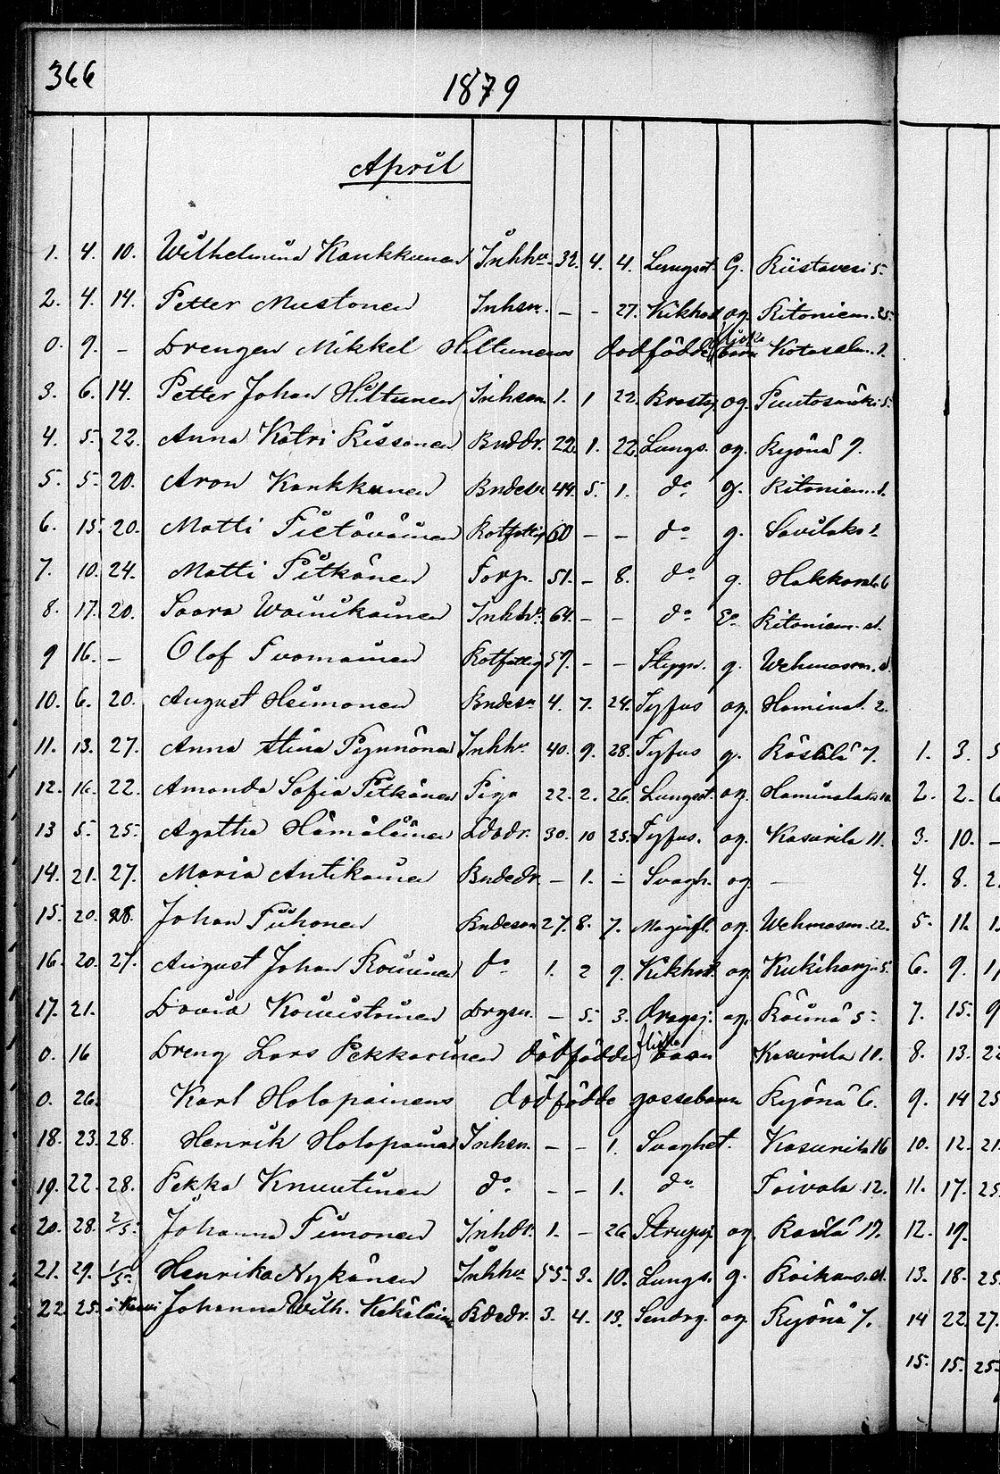 366
1879
April
1. 4. 10. Wilhelmina Kaukkunen Inhhu 32. 4. 4. Lungsot. G. Riistavesi 5.
2. 4. 14. Petter Mustonen Inhsn. — — 27. Kikhost og. Ritoniem. 25.
0. 9. — Drengen Mikkel Hiltunens dödfödde flicko barn Kotasalm. 1.
3. 6. 14. Petter Johan Hiltunen Inhsn. 1. 1 22. Brostsj og. Puutosmäki 5.
4. 5. 22. Anna Katri Rissanen Bnddr. 22. 1. 22. Lungs. og. Ryönä 9.
5. 5. 20. Aron Kaukkunen Bndesn 44. 5. 1. do g. Ritoniem. 1.
6. 15. 20. Matti Tietäväinen Rotfattig 60 — — do g. Savilaks 2.
7. 10. 24. Matti Pitkänen Torp. 51. — 8. do g. Hakkaral. 6
8. 17. 20. Saara Wainikainen Inhhu. 64. — — do Ea Ritoniem. d.
9 16. — Olof Tvomainen Rotfattig 57. — — g. Wehmasm. d.
10. 6. 20. August Heimonen Bndesn 4. 7. 24. Tyfus og. Haminal. 2.
11. 13. 27. Anna Stina Pynnönen Inhhu. 40. 9. 28. Tyfus g. Räsälä 7.
12. 16. 22. Amanda Sofia Pitkänen Piga 22. 2. 26. Lungsot. og. Haminalaks 10
13 5. 25. Agatha Hämäläinen Ldbdr. 30. 10 25. Tyfus. og. Kasurila 11.
14. 21. 27. Maria Antikainen Bndedr. — 1. — Svagh. og —
15. 20. 28. Johan Tiihonen Bndeson 27. 8. 7. Maginfl. og. Wehmasm. 22.
16. 20. 27. August Johan Rouvinen do 1. 2 9. Kikhost. og. Kukkharj. 5.
17. 21. David Kouvistoinen Drgsn. — 5. 3. dragsj. og. Räimä 5.
0. 16 Dreng Lars Pekkarinen dödfödde flicko barn Kasurila 11.
0. 26. Karl Holopainens dödfödde gossebarn Ryönä 6.
18. 23. 28. Henrik Holopainen Inhsn. — — 1. Svaghet. Kasurila 16
19. 22. 28. Pekka Knuutinen do — — 1. do Toivala 12.
20. 28. 2/5. Johanna Timonen Inhdr. 1. — 26 Strupsj. og Räsälä 17.
21. 29. 1/5. Henrika Nykänen Inhhu 55. 3. 10. Lungs. g. d.
22. 25. Johanna Wilh. Kekäläin Bdedr. 3. 4. 13. Lendrg. og. Ryönä 7.
1. 3. 5
2. 2. 6
3. 10. —
4. 8. 2
5. 11. 1.
6. 9. 1
7. 15. 9
8. 13. 22
9. 14 25
10. 12. 21.
11. 17. 25.
12. 19.
13. 18. 25.
14 22. 27.
15. 15. 25.